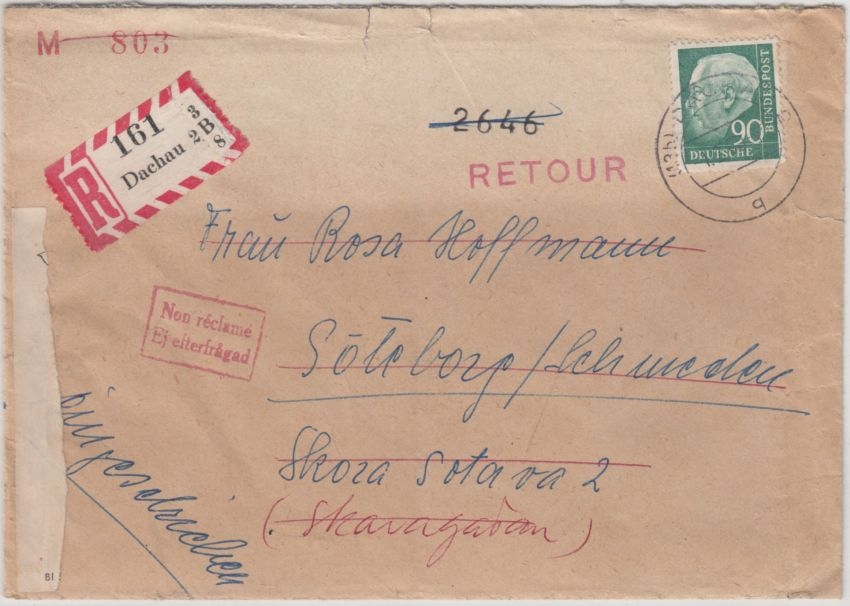 M 803
R
161
Dachau 2B
3
8
2646
RETOUR
90
DEUTSCHE
BUNDESPOST
b
Frau Rosa Hoffmann
Non réclamé
Ej efterfrågad
Göteborg/Schweden
Skoza Gotava 2
(Skaragatan)
eingeschrieben
BI